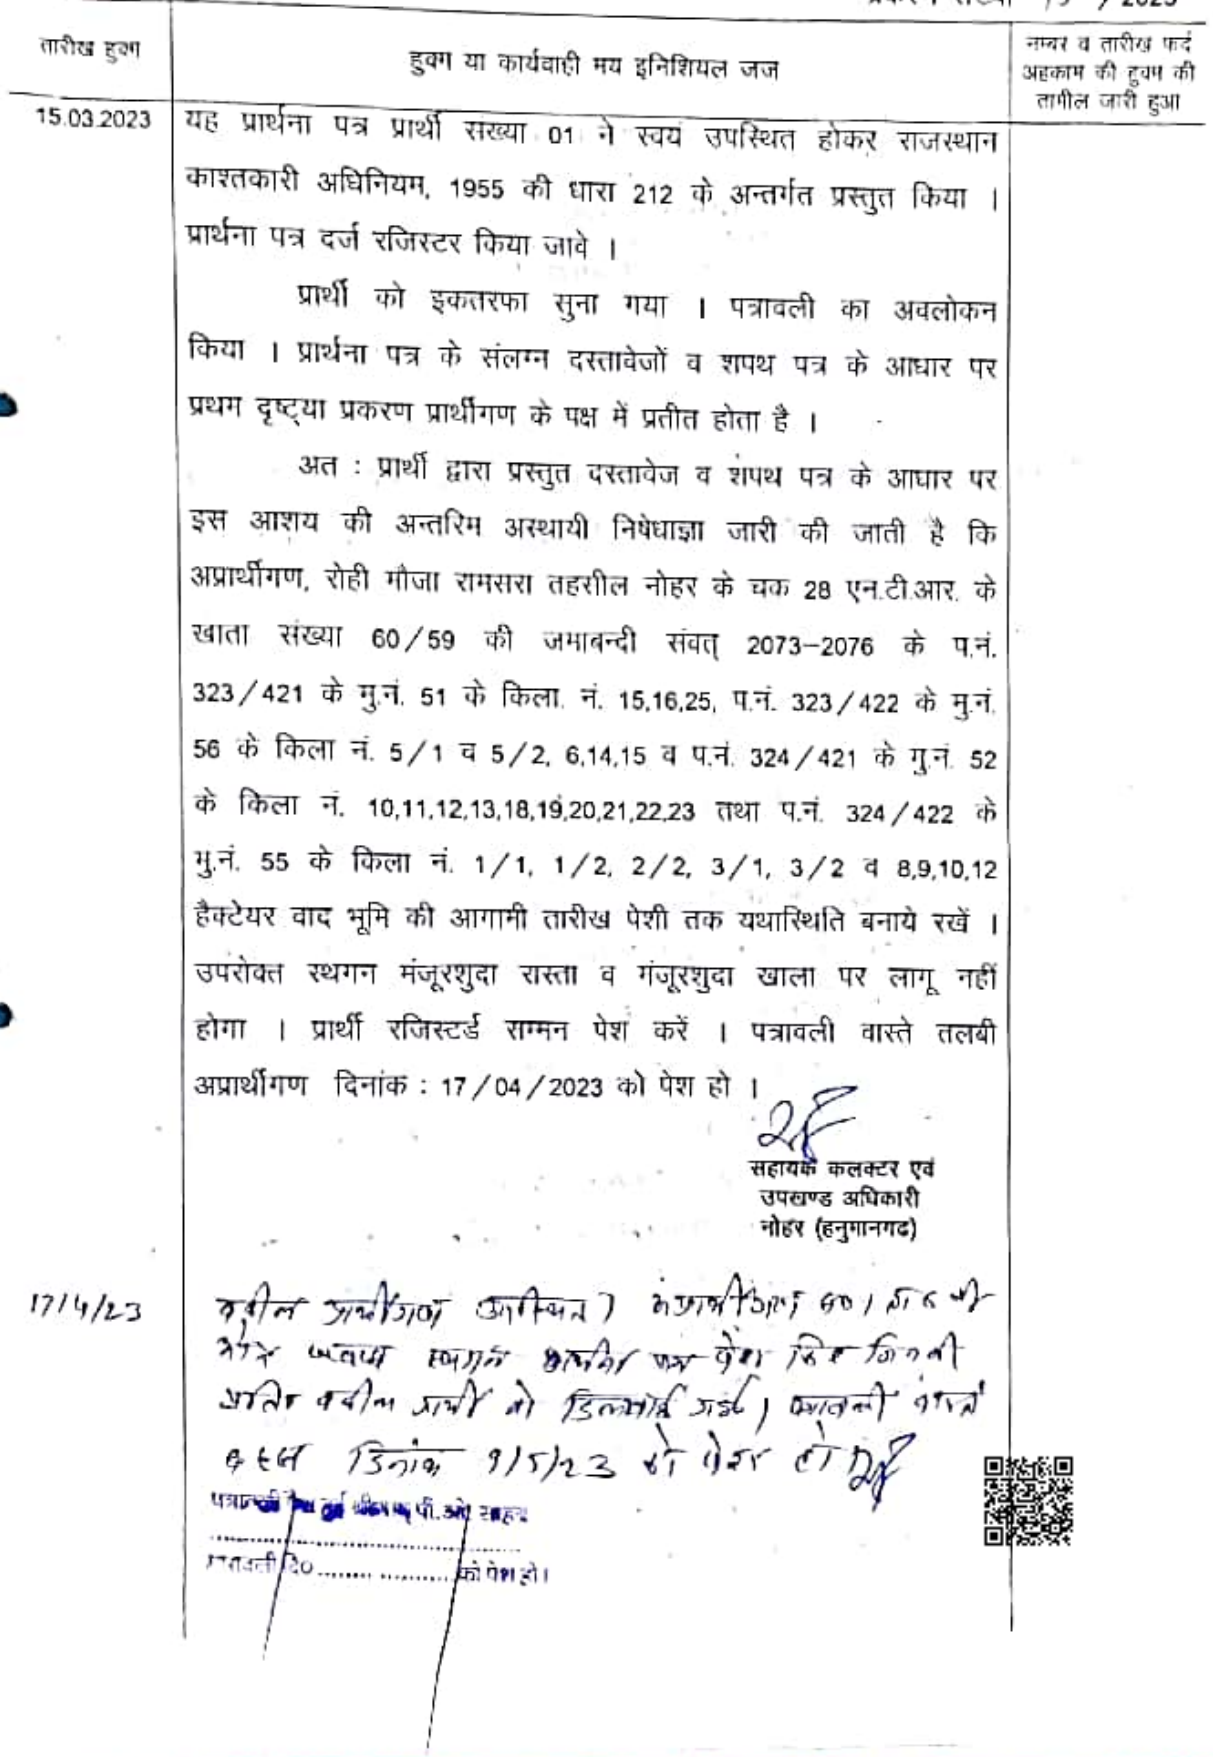 / 2023
तारीख हुक्म
हुक्म या कार्यवाही मय इनिशियल जज
नम्बर व तारीख फर्द
अहकाम की हुक्म की
तामील जारी हुआ
15.03.2023
यह प्रार्थना पत्र प्रार्थी संख्या 01 ने स्वयं उपस्थित होकर राजस्थान
काश्तकारी अधिनियम, 1955 की धारा 212 के अन्तर्गत प्रस्तुत किया ।
प्रार्थना पत्र दर्ज रजिस्टर किया जावे ।
प्रार्थी को इकतरफा सुना गया । पत्रावली का अवलोकन
किया । प्रार्थना पत्र के संलग्न दस्तावेजों व शपथ पत्र के आधार पर
प्रथम दृष्ट्या प्रकरण प्रार्थीगण के पक्ष में प्रतीत होता है ।
अत : प्रार्थी द्वारा प्रस्तुत दस्तावेज व शपथ पत्र के आधार पर
इस आशय की अन्तरिम अस्थायी निषेधाज्ञा जारी की जाती है कि
अप्रार्थीगण, रोही मौजा रामसरा तहसील नोहर के चक 28 एन.टी.आर. के
खाता संख्या 60/59 की जमाबन्दी संवत् 2073–2076 के प.नं.
323/421 के मु.नं. 51 के किला. नं. 15,16,25, प.नं. 323/422 के मु.नं.
56 के किला नं. 5/1 व 5/2, 6,14,15 व प.नं. 324/421 के मु.नं. 52
के किला नं. 10,11,12,13,18,19,20,21,22,23 तथा प.नं. 324/422 के
मु.नं. 55 के किला नं. 1/1, 1/2, 2/2, 3/1, 3/2 व 8,9,10,12
हैक्टेयर वाद भूमि की आगामी तारीख पेशी तक यथास्थिति बनाये रखें ।
उपरोक्त स्थगन मंजूरशुदा रास्ता व मंजूरशुदा खाला पर लागू नहीं
होगा । प्रार्थी रजिस्टर्ड सम्मन पेश करें । पत्रावली वास्ते तलबी
अप्रार्थीगण दिनांक : 17/04/2023 को पेश हो ।
सहायक कलक्टर एवं
उपखण्ड अधिकारी
नोहर (हनुमानगढ)
17/4/23
वकील प्रार्थीगण उपस्थित।
जवाब स्थगन प्रार्थना पत्र पेश किए जिनकी
प्रति वकील प्रार्थी को दिलवाई गई।
बहस दिनांक 9/5/23 को पेश हो
पी.ओ साहब
को पेश हो।